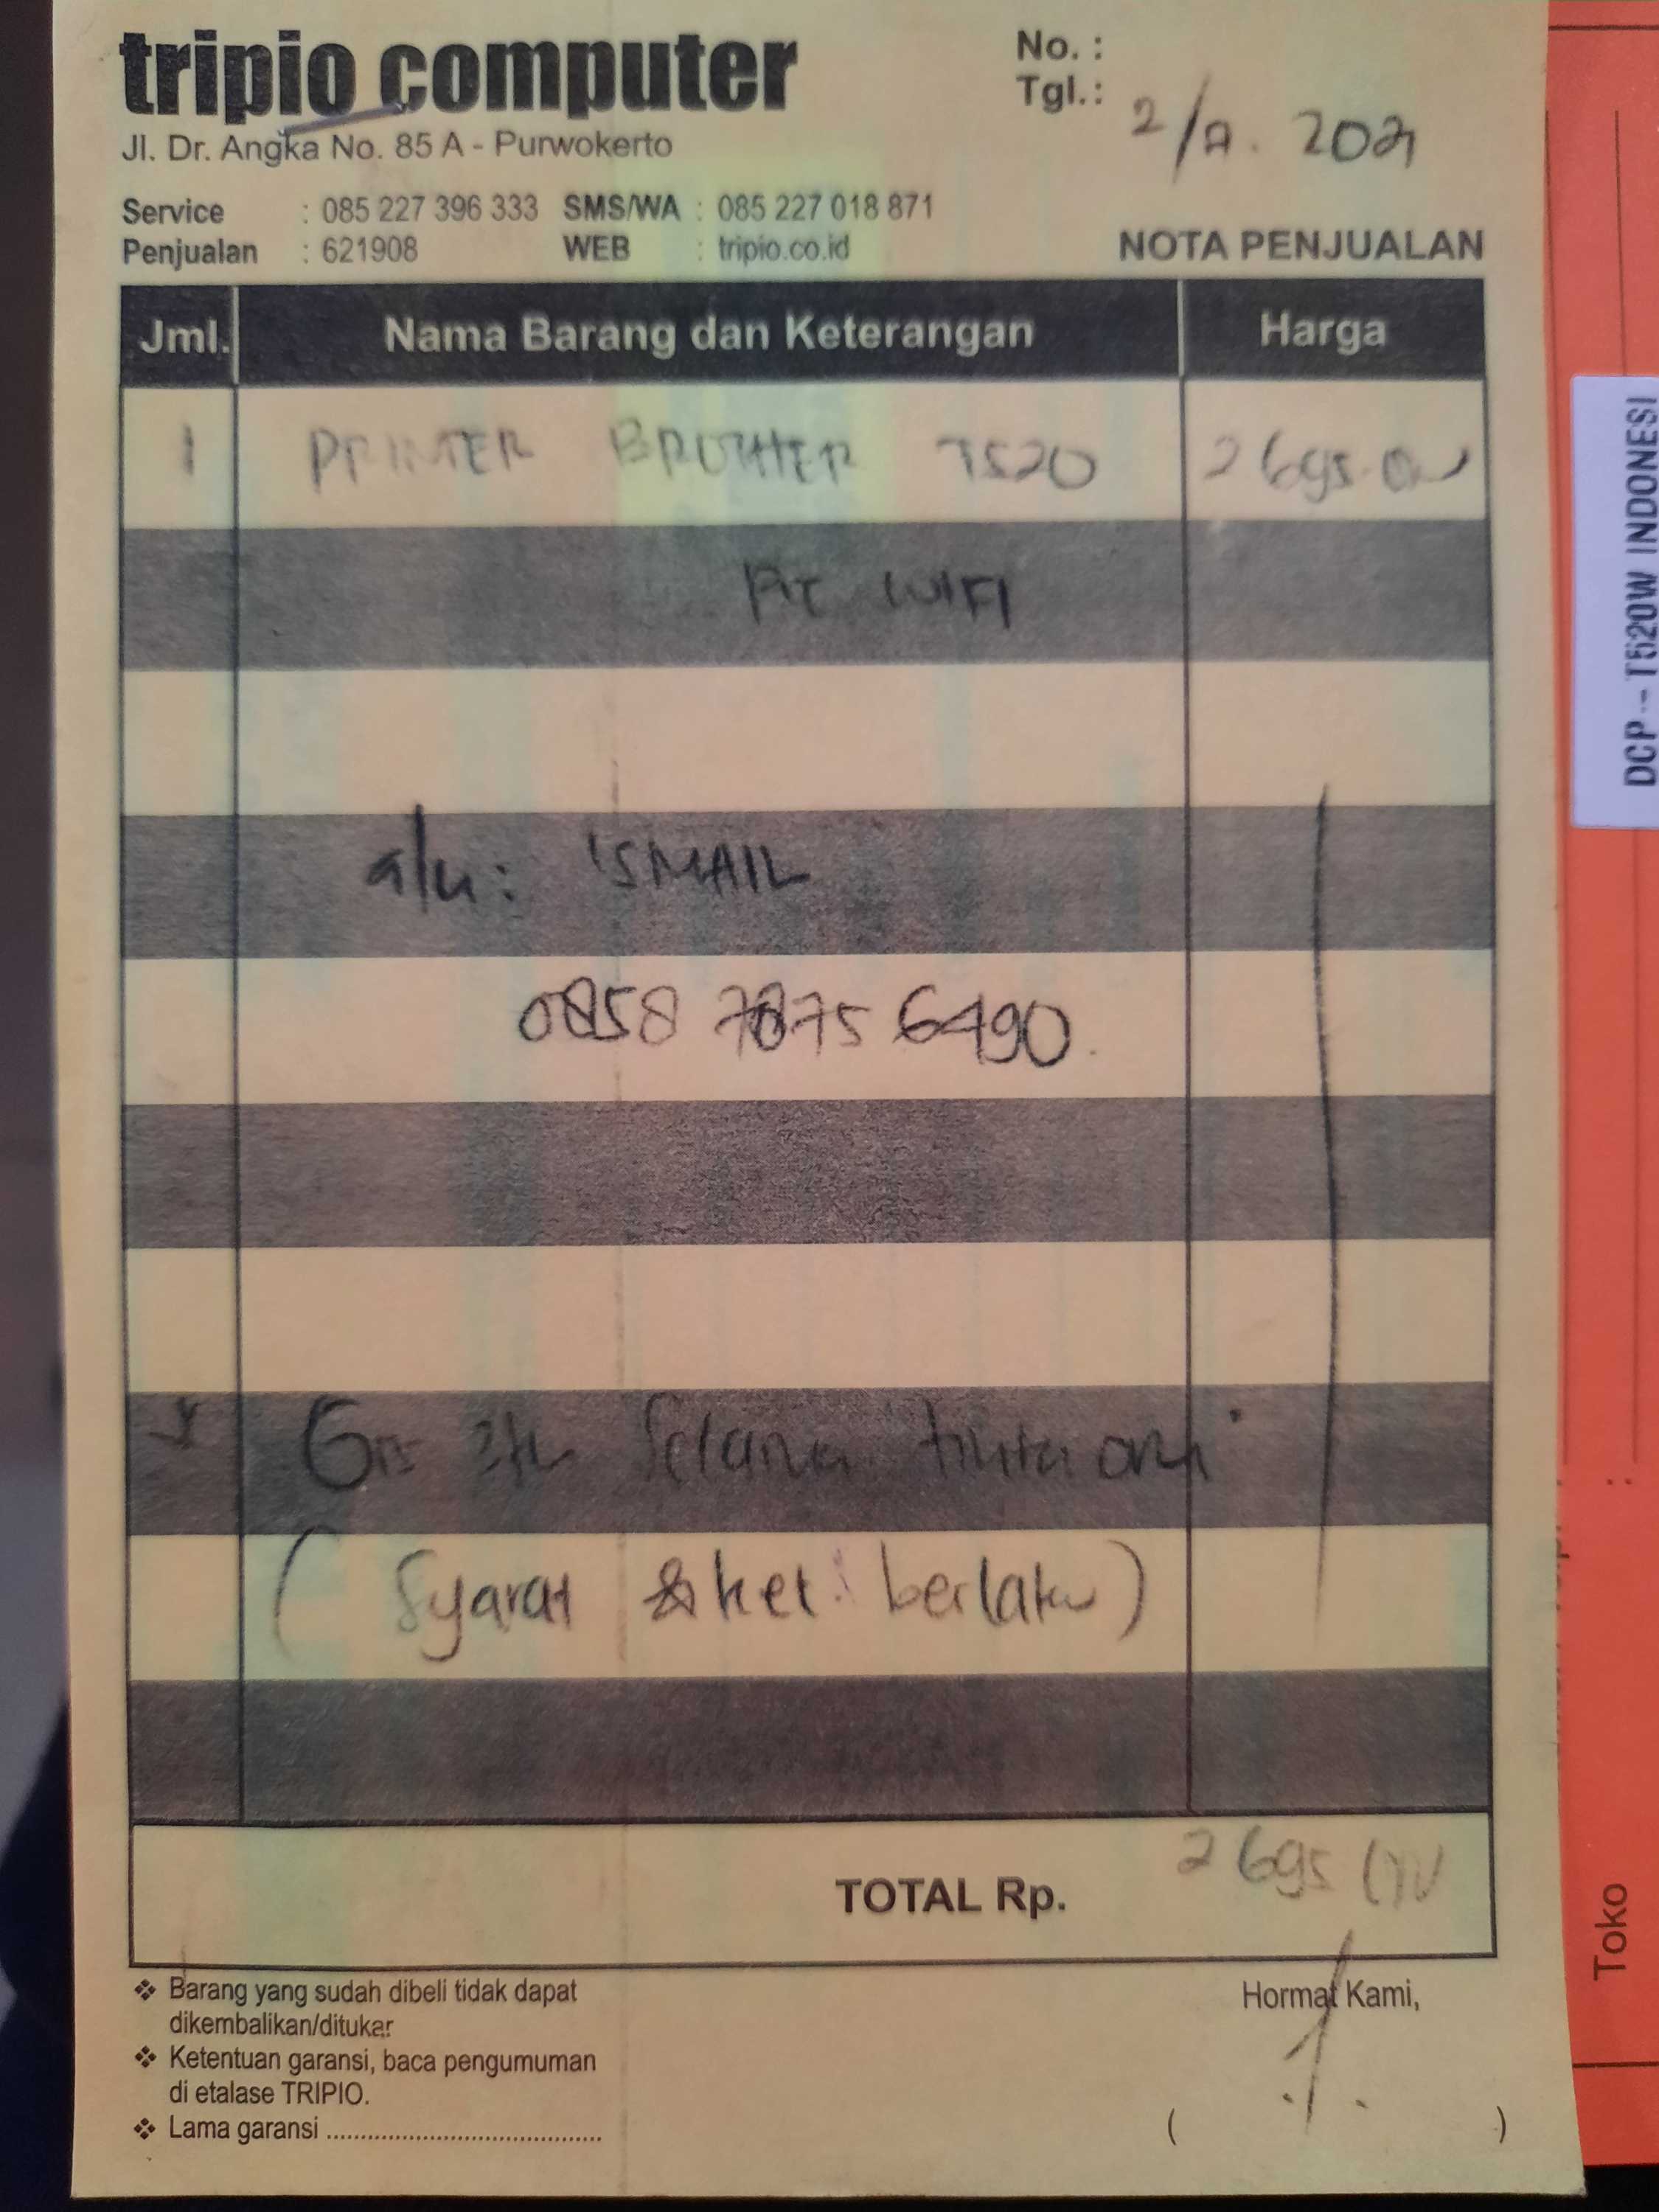 tripio computer
Jl. Dr. Angka No. 85 A - Purwokerto
No. :
Tgl.: 2/
Service : 085 227 396 333 SMS/WA : 085 227 018 871
Penjualan : 621908 WEB : tripio.co.id
NOTA PENJUALAN
Jml. Nama Barang dan Keterangan Harga
1 PRINTER BROTHER T520 2695
WIFI
a/n: ISMAIL
0858 7875 6490
Selama tinta ori
(Syarat & ket. berlaku)
TOTAL Rp. 2695
❖ Barang yang sudah dibeli tidak dapat
dikembalikan/ditukar
❖ Ketentuan garansi, baca pengumuman
di etalase TRIPIO.
❖ Lama garansi ..........................................
Hormat Kami,
( )
DCP-T520W INDONESI
Toko :